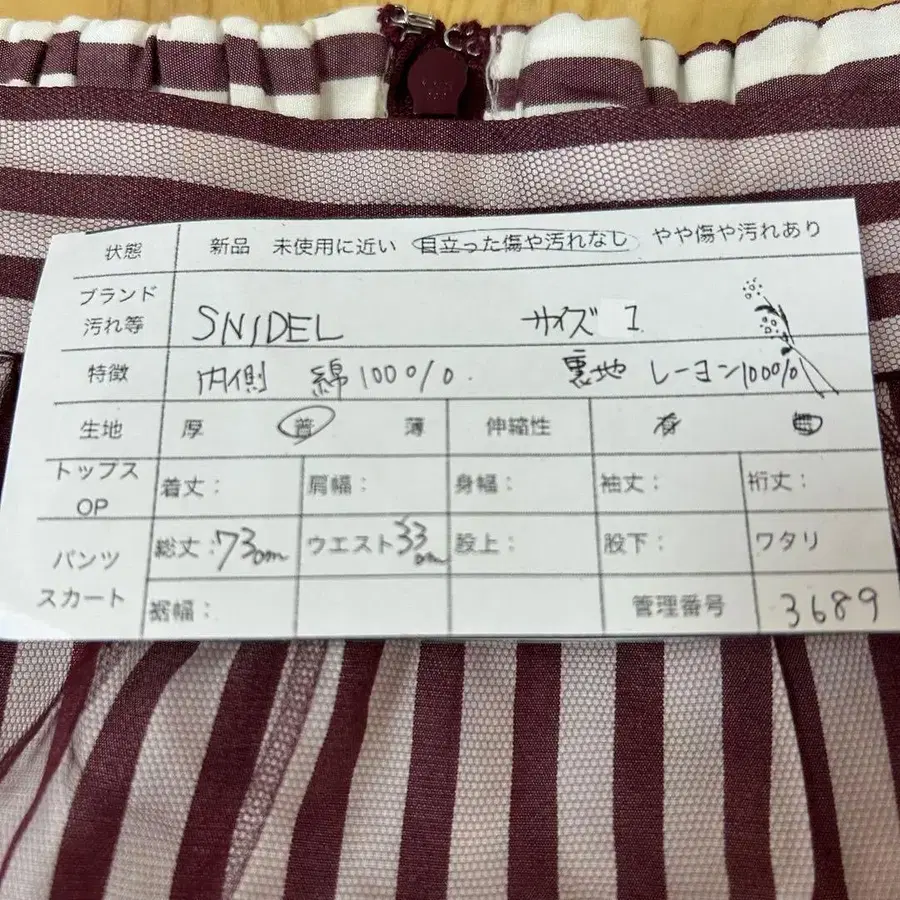 状態 新品 未使用に近い 目立った傷や汚れなし やや傷や汚れあり
ブランド
汚れ等 SNIDEL サイズ 1
特徴 内側 綿100% 裏地 レーヨン100%
生地 厚 普 薄 伸縮性 有 無
トップス
OP 着丈: 肩幅: 身幅: 袖丈: 裄丈:
パンツ
スカート 総丈:73cm ウエスト33cm 股上: 股下: ワタリ
裾幅: 管理番号 3689